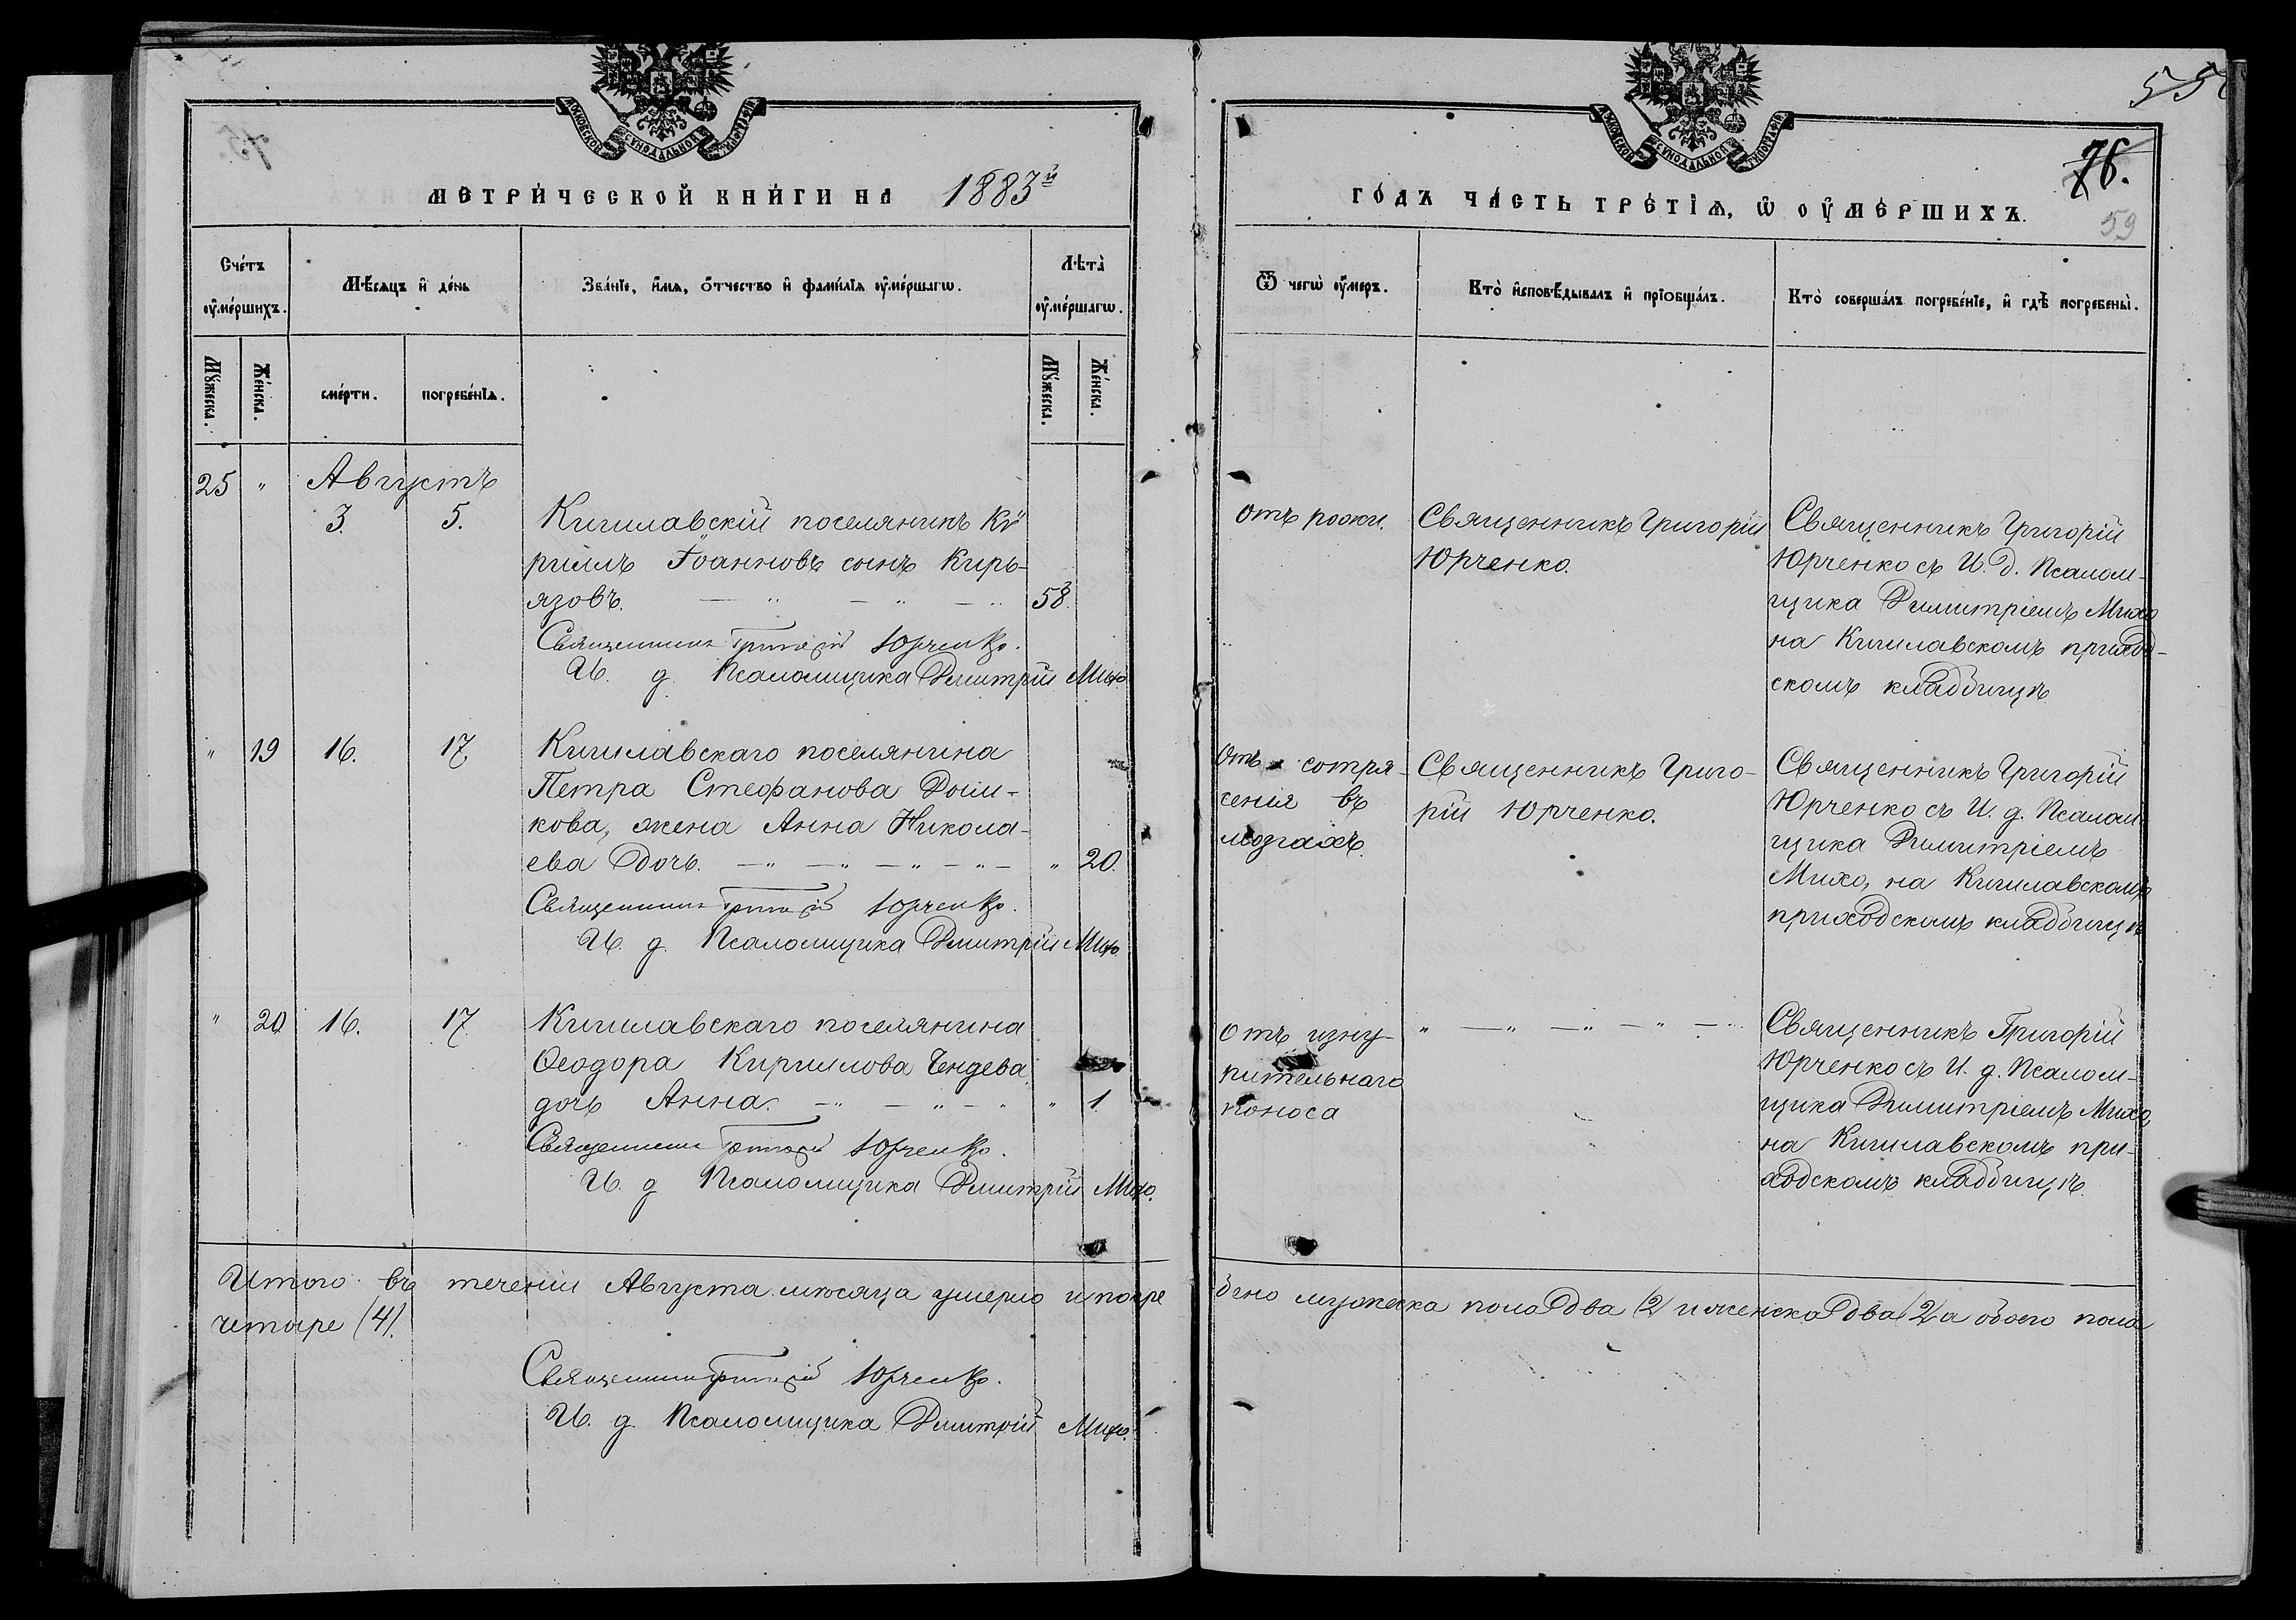 МОСКОВСКОЙ СѴНОДАЛЬНОЙ ТИПОГРАФІИ
МОСКОВСКОЙ СѴНОДАЛЬНОЙ ТИПОГРАФІИ
55
76.
59
МЕТРИ́ЧЕСКОЙ КНИ́ГИ НА 1883й
ГО́ДЪ ЧА́СТЬ ТРЕ́ТІѦ, Ѡ҆ ОУ҆МЕ́РШИХЪ.
Сче́тъ оу҆ме́ршихъ.
Мѣ́сяцъ и҆ де́нь
Зва́нїе, и҆́мѧ, ѻ҆́тчество и҆ фамі́лїѧ оу҆ме́ршагѡ.
Лѣ́та оу҆ме́ршагѡ.
Ѿ чегѡ̀ оу҆́меръ.
Кто̀ и҆сповѣ́дывалъ и҆ прїѻбща́лъ.
Кто̀ соверша́лъ погребе́нїе, и҆ гдѣ̀ погребены̀.
Мꙋ́жеска.
Же́нска.
сме́рти.
погребе́нїѧ.
Мꙋ́жеска.
Же́нска.
25 " Августъ
3. 5. Кишлавскій поселянинъ Ки
рилъ Іоанновъ сынъ Кирь-
язовъ. — " — " — " 58.
Священникъ Григорій Юрченко.
И. д. Псаломщика Димитрій Михо.
отъ рожи.
Священникъ Григорій
Юрченко.
Священникъ Григорій
Юрченко съ И. д. Псалом-
щика Димитріемъ Михо
на Кишлавскомъ приход-
скомъ кладбищѣ
" 19 16. 17. Кишлавскаго поселянина
Петра Стефанова Дош-
кова, жена Анна Никола-
ева дочь. — " — " — " — " — " 20.
Священникъ Григорій Юрченко.
И. д. Псаломщика Димитрій Михо.
Отъ сотря-
сенія въ
мозгахъ.
Священникъ Григо-
рій Юрченко.
Священникъ Григорій
Юрченко съ И. д. Псалом-
щика Димитріемъ
Михо, на Кишлавскомъ
приходскомъ кладбищѣ
" 20 16. 17. Кишлавскаго поселянина
Ѳеодора Кирилова Чендева
дочь Анна. — " — " — " " 1.
Священникъ Григорій Юрченко.
И. д. Псаломщика Димитрій Михо.
Отъ изну-
рительнаго
поноса
" — " — " — " — "
Священникъ Григорій
Юрченко съ И. д. Псалом-
щика Димитріемъ Михо,
на Кишлавскомъ при-
ходскомъ кладбищѣ.
Итого въ теченіи Августа мѣсяца умерло и погре
бено мужеска пола два (2) и женска два (2) а обоего пола
четыре (4).
Священникъ Григорій Юрченко.
И. д. Псаломщика Димитрій Михо.